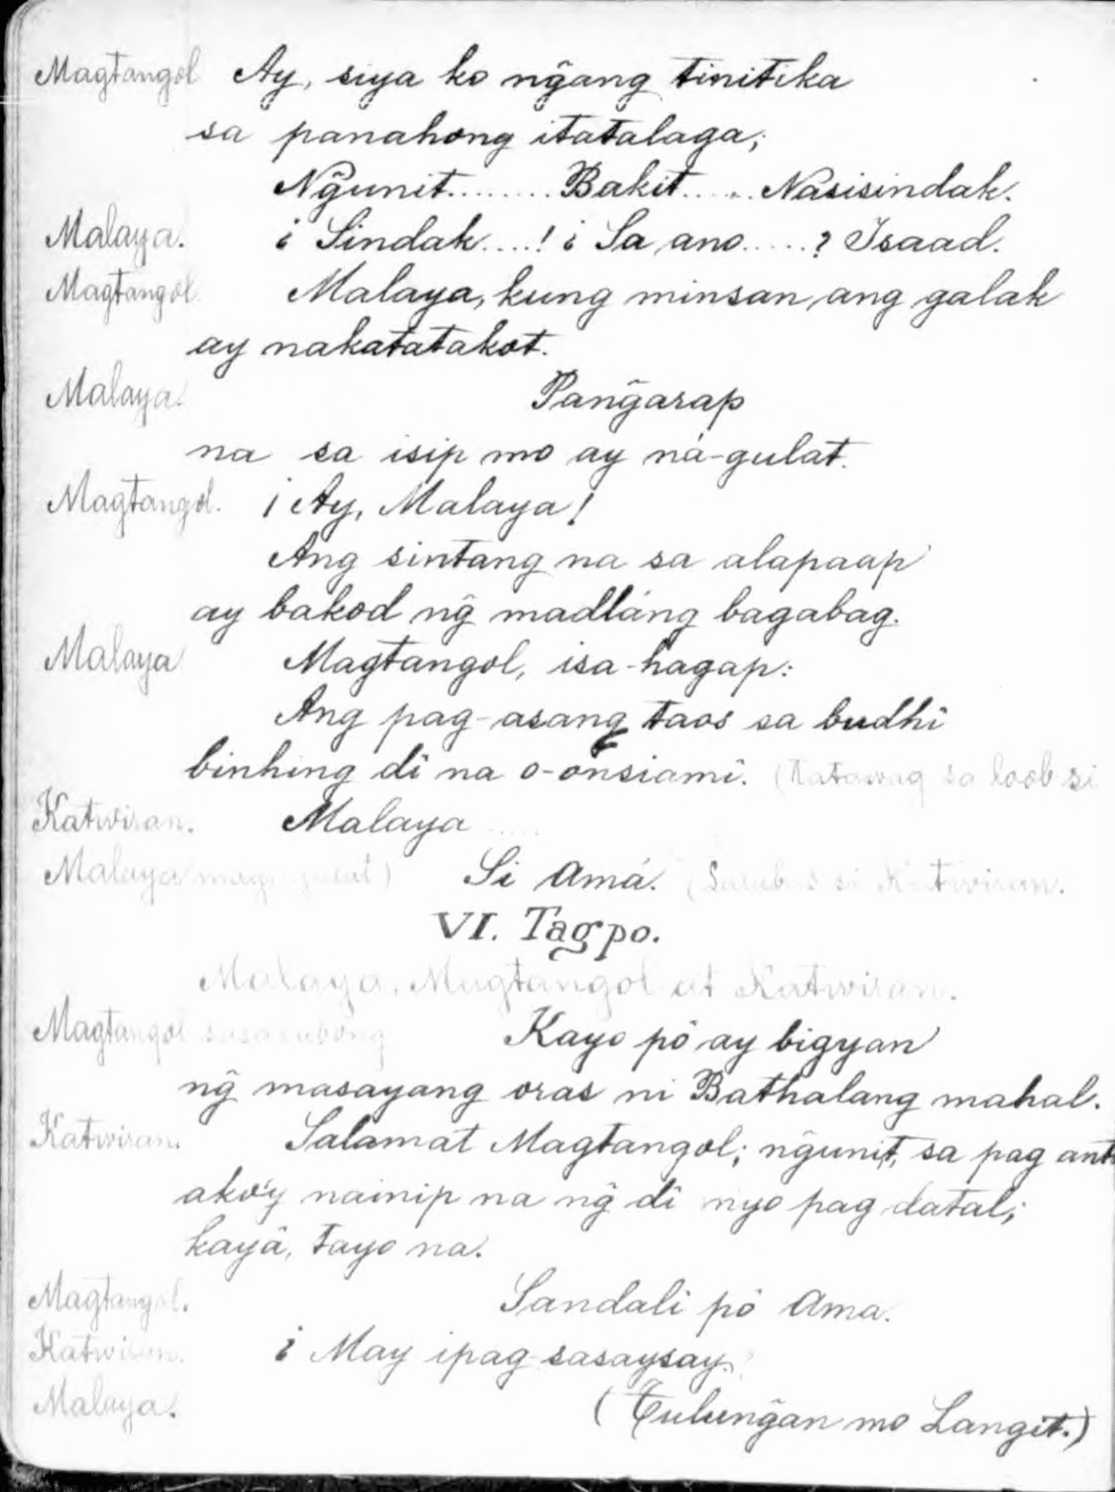 Magtangol Ay, siya ko ng̃ang tinitika
sa panahong itatalaga;
Ng̃unit........Bakit......Nasisindak.
Malaya. ¿ Sindak....! ¿ Sa ano.....? Isaad.
Magtangol Malaya, kung minsan, ang galak
ay nakatatakot.
Malaya. Pang̃arap
na sa isip mo ay ná-gulat.
Magtangol. ¡ Ay, Malaya!
Ang sintang na sa alapaap
ay bakod ng̃ madláng bagabag.
Malaya Magtangol, isa-hagap:
Ang pag-asang taos sa budhî
binhing di na o-onsiamî. (Tatawag sa loob si
Katwiran. Malaya .....
Malaya Si Amá. (Lalabas si Katwiran.
VI. Tagpo.
Malaya, Magtangol at Katwiran.
Magtangol sasasubong Kayo pô ay bigyan
ng̃ masayang oras ni Bathalang mahal.
Katwiran. Salamat Magtangol; ng̃unit, sa pag ant
ako'y nainip na ng̃ di nyo pag datal;
kayâ, tayo na.
Magtangol. Sandali pô Ama.
Katwiran. ¿ May ipag-sasaysay?
Malaya. (Tulung̃an mo Langit.)